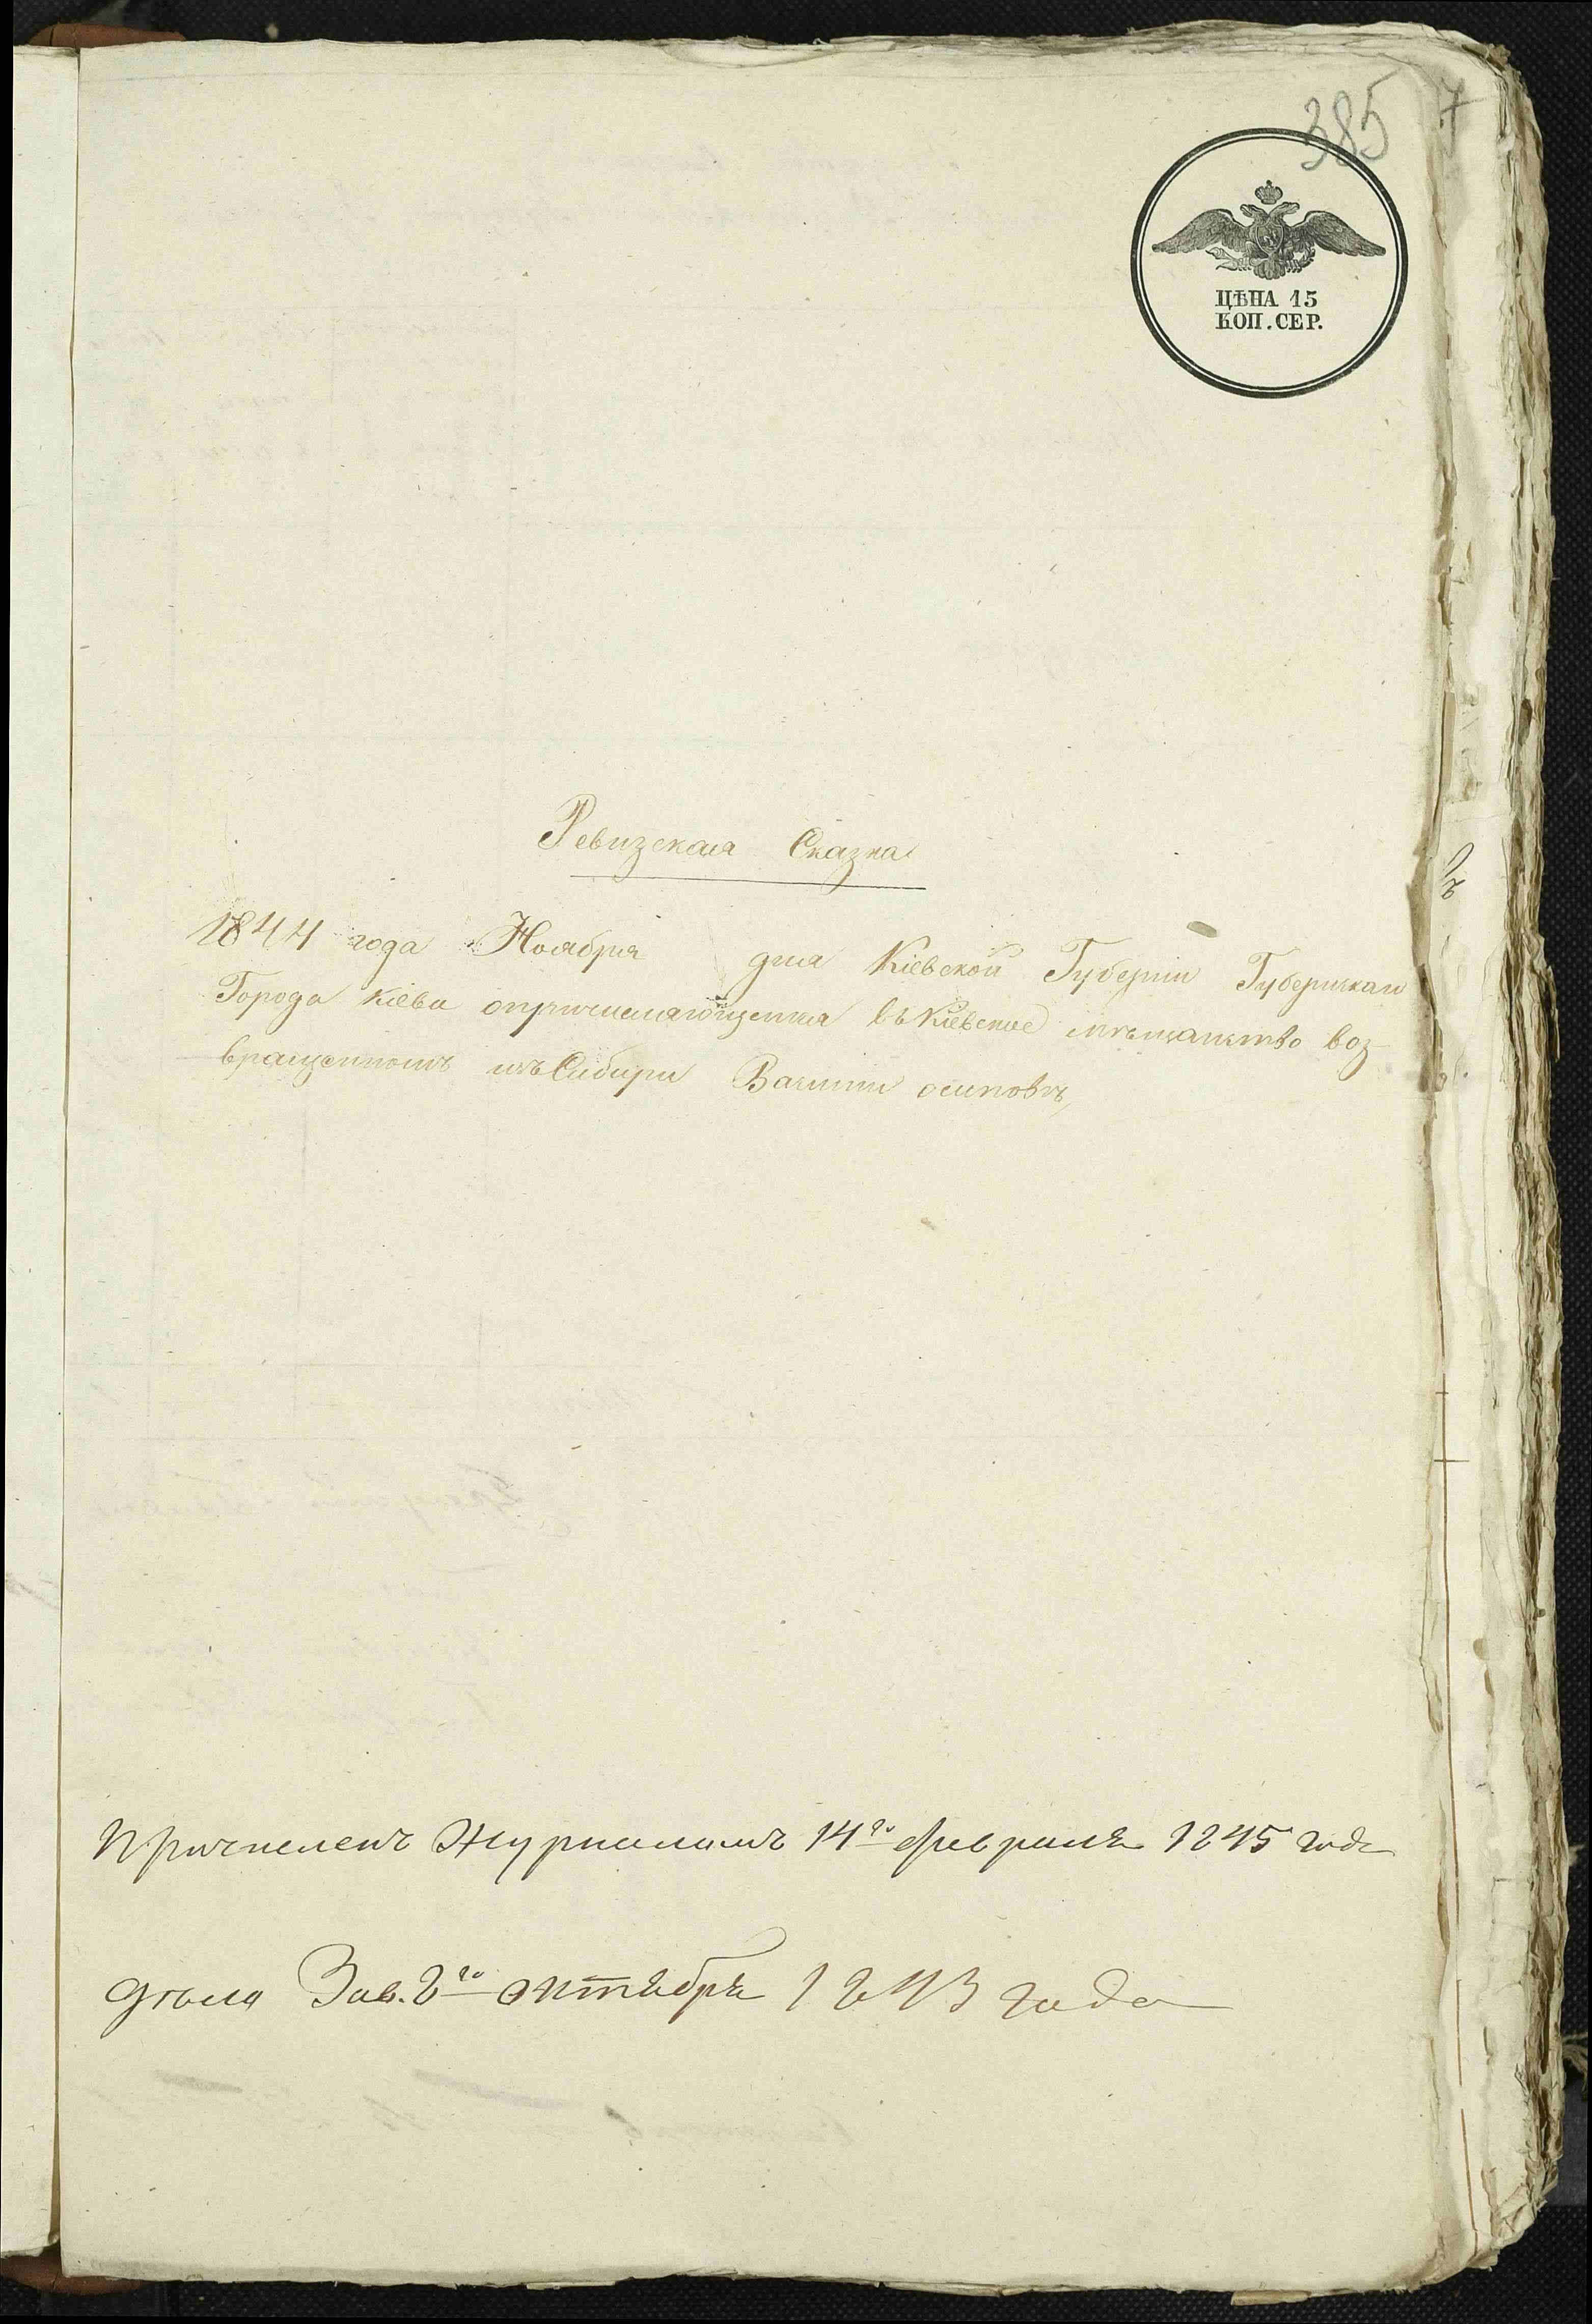 385 7
ЦѢНА 15
КОП. СЕР.
Ревизская Сказка
1844 года Ноября дня Кіевской Губерніи Губернскаго
Города Кіева опричисляющемся въ Кіевское мѣщанство воз-
вращенномъ изъ Сибири осиповѣ,
Причисленъ Журналомъ 14го февраля 1845 года
дѣло Зав. 2го октября 1843 года